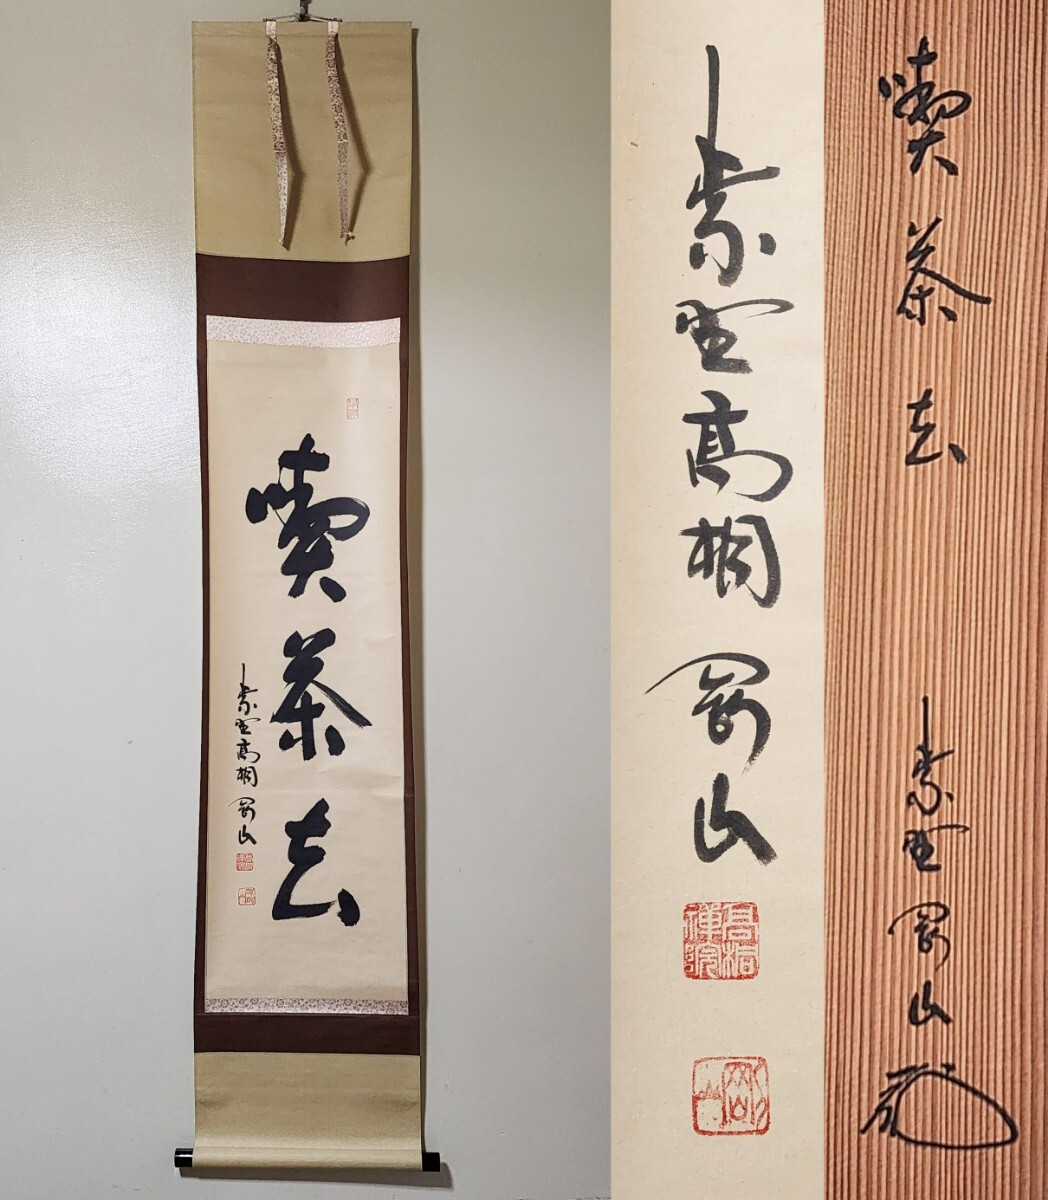 喫茶去
紫野高桐 剛山
紫野高桐 剛山
高桐禅院
剛山
喫茶去
紫野 剛山